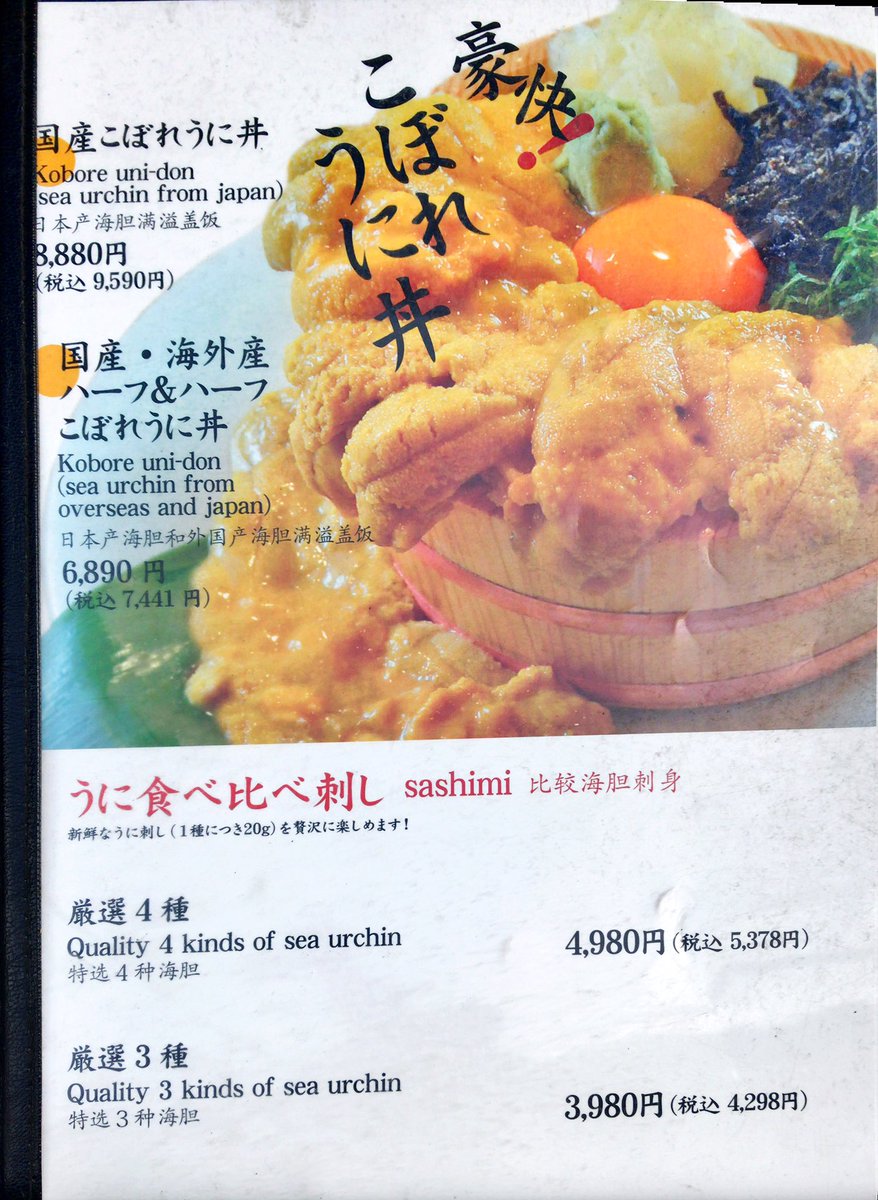 豪快!
こぼれ
うに丼
国産こぼれうに丼
Kobore uni-don
(sea urchin from japan)
日本产海胆满溢盖饭
8,880円
(税込 9,590円)
国産・海外産
ハーフ&ハーフ
こぼれうに丼
Kobore uni-don
(sea urchin from
overseas and japan)
日本产海胆和外国产海胆满溢盖饭
6,890 円
(税込 7,441 円)
うに食べ比べ刺し sashimi 比较海胆刺身
新鮮なうに刺し(1種につき20g)を贅沢に楽しめます!
厳選4種
Quality 4 kinds of sea urchin
特选4种海胆
4,980円(税込 5,378円)
厳選3種
Quality 3 kinds of sea urchin
特选3种海胆
3,980円(税込 4,298円)